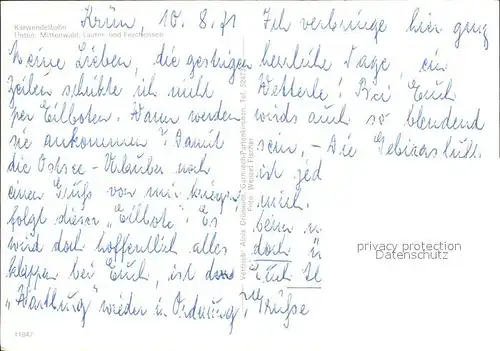 Karwendelbahn
Unten: Mittenwald, Lauter- und Ferchensee
Krün, 10. 8. 71
Meine Lieben, die gestrigen
Zeilen schickte ich nicht
per Eilboten. Wann werden
sie ankommen? Damit
die Ostsee-Urlauber noch
einen Gruß von mir kriegen,
folgt dieser "Eilbote". Es
wird doch hoffentlich alles
klappen bei Euch, ist das
"Wartburg" wieder in Ordnung,
Ich verbringe hier ganz
herrliche Tage, ein
Wetterle! Bei Euch
wirds auch so blendend
sein, - Die Gebirgsluft
ist jed
mich.
beien u
doch ü
Euch
Grüße
privacy protection
Datenschutz
11847